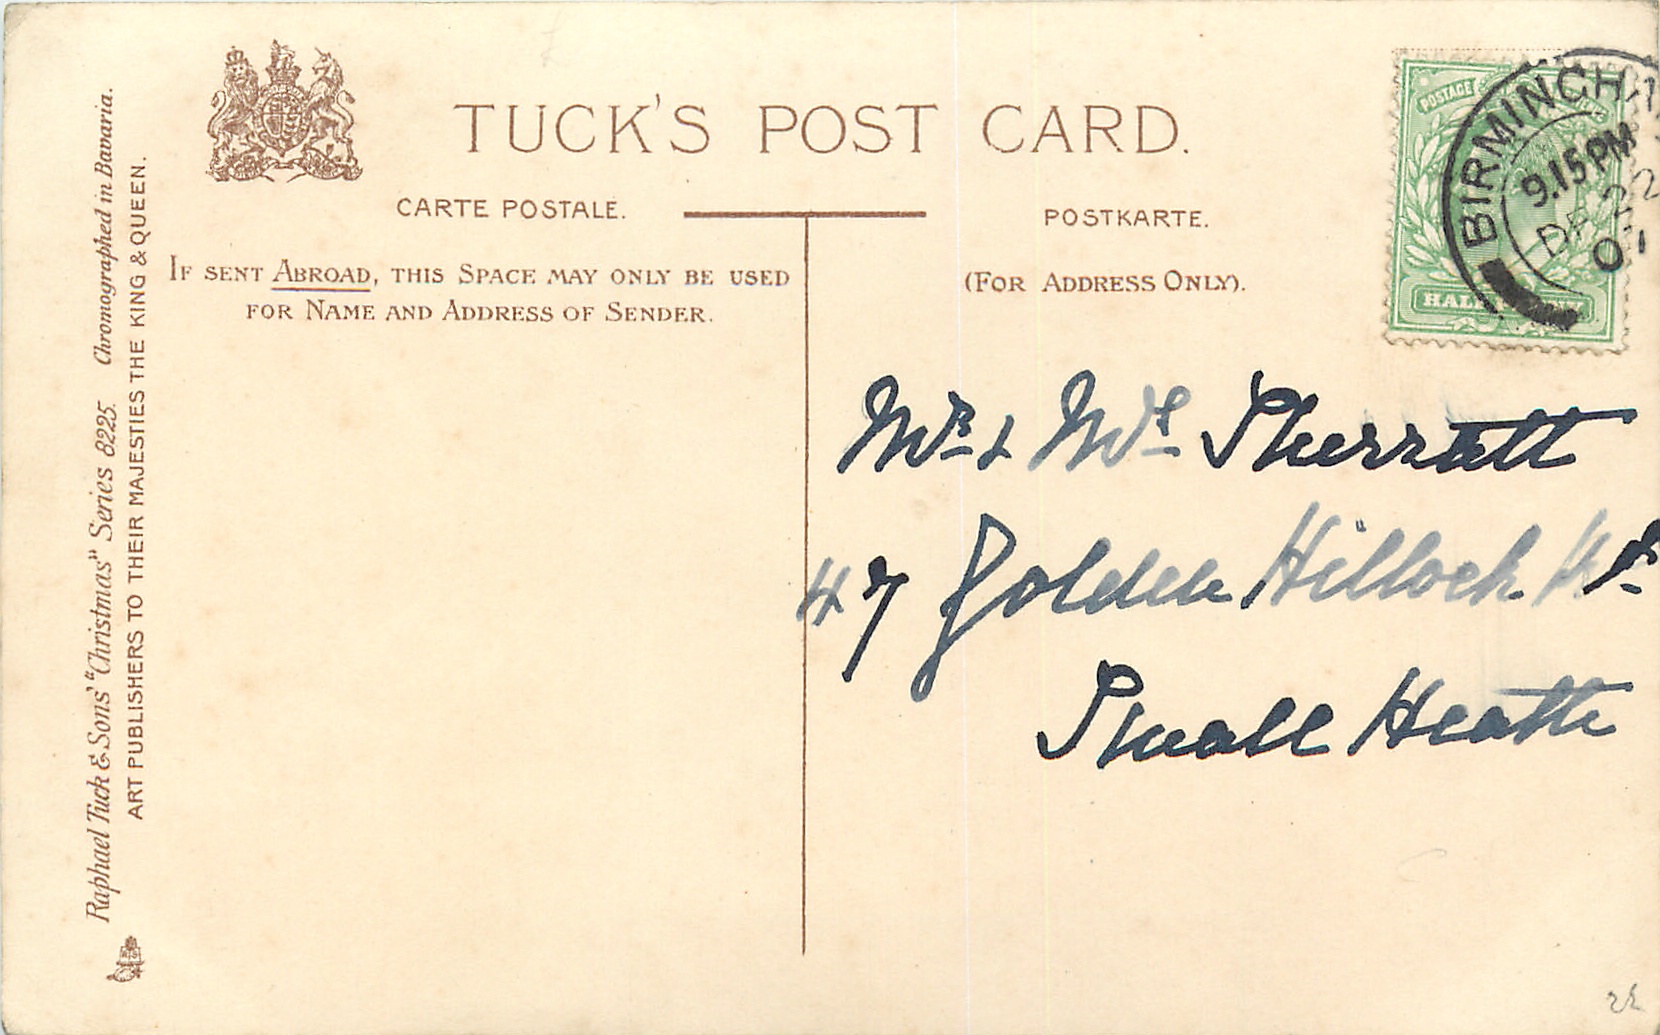 TUCK'S POST CARD.
CARTE POSTALE.
POSTKARTE.
IF SENT ABROAD, THIS SPACE MAY ONLY BE USED
FOR NAME AND ADDRESS OF SENDER.
(FOR ADDRESS ONLY).
POSTAGE
BIRMINGHA
9.15 PM
DE 22
07
HALFPENNY
Mr & Mrs Sherratt
47 Golden Hillock Rd
Small Heath
Raphael Tuck & Sons' "Christmas" Series 8225. Chromographed in Bavaria.
ART PUBLISHERS TO THEIR MAJESTIES THE KING & QUEEN.